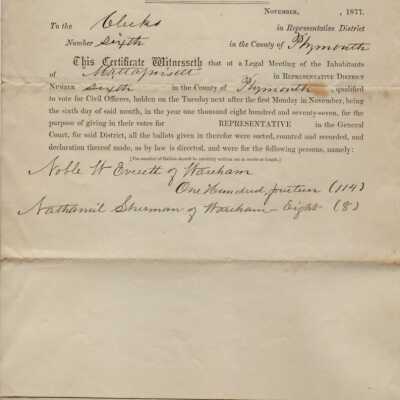 NOVEMBER, , 1877.
To the Clerks in Representative District
Number Sixth in the County of Plymouth
This Certificate Witnesseth that at a Legal Meeting of the Inhabitants
of Mattapoisett in REPRESENTATIVE DISTRICT
NUMBER Sixth in the County of Plymouth, qualified
to vote for Civil Officers, holden on the Tuesday next after the first Monday in November, being
the sixth day of said month, in the year one thousand eight hundred and seventy-seven, for the
purpose of giving in their votes for REPRESENTATIVE in the General
Court, for said District, all the ballots given in therefor were sorted, counted and recorded, and
declaration thereof made, as by law is directed, and were for the following persons, namely:
[The number of Ballots should be carefully written out in words at length.]
Noble W Everett of Wareham
One Hundred, fourteen (114)
Nathaniel Sherman of Wareham - Eight - (8)